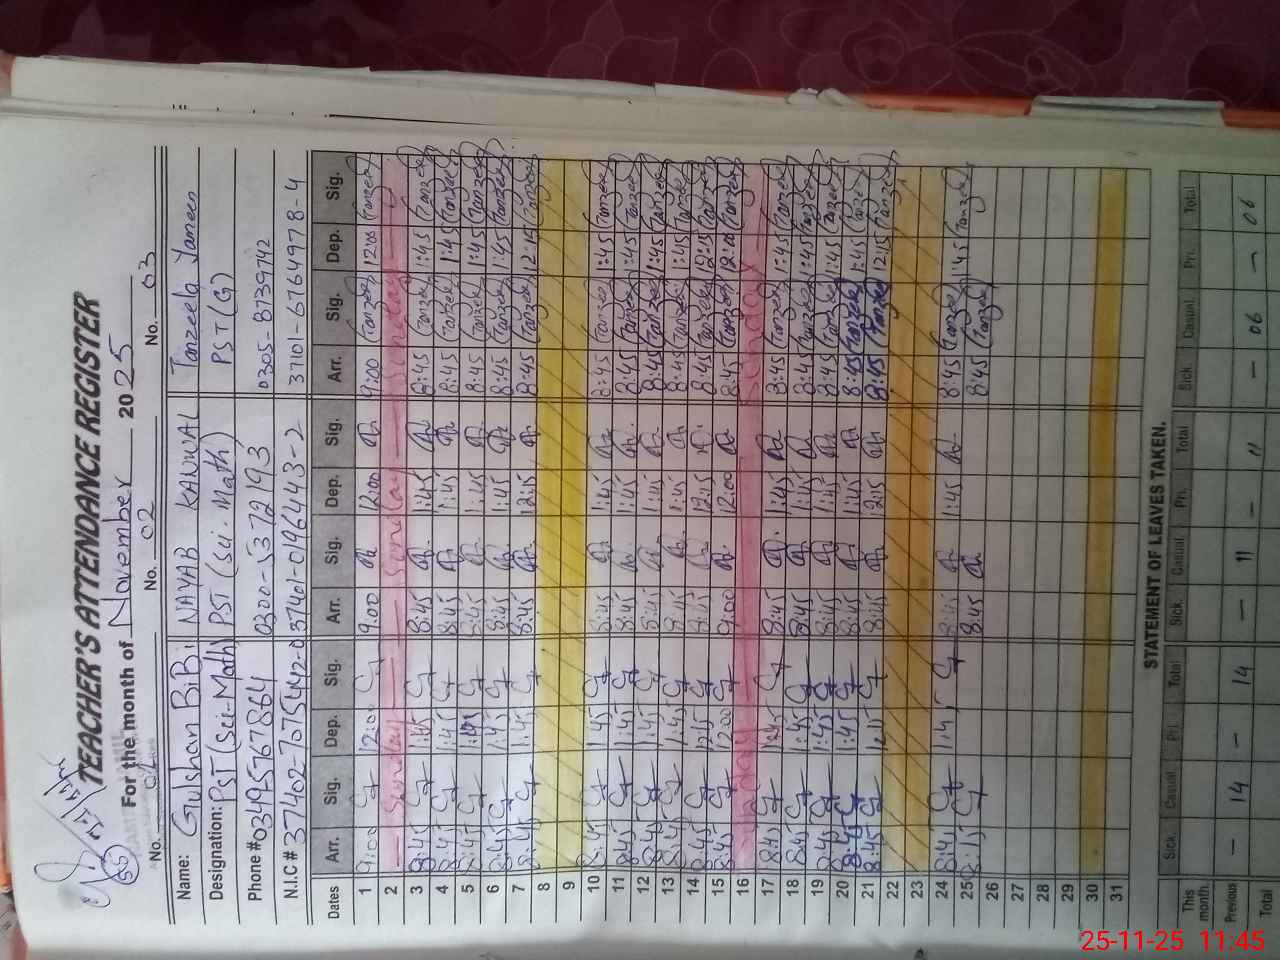 TEACHER'S ATTENDANCE REGISTER
For the month of November 2025
No. No. 02 No. 03
Name: Gulshan BiBi NAYAB KANWAL Tanzeela Yameen
Designation: PST (Sci-Math) PST (Sci. Math) PST (G)
Phone # 03495767864 0300-5372193 0305-8739742
N.I.C # 37402-7075442-0 37401-0196443-2 37101-6764978-4
Dates Arr. Sig. Dep. Sig. Arr. Sig. Dep. Sig. Arr. Sig. Dep. Sig.
1 9:00 12:00 9.00 12.00 9:00 Tanzeela 12:00 Tanzeela
2 Sunday Sunday Sunday
3 8:45 1:45 8:45 1:45 8:45 Tanzeela 1:45 Tanzeela
4 8:45 1:45 8:45 1:45 8:45 Tanzeela 1:45 Tanzeela
5 8:45 1:45 8:45 1:45 8:45 Tanzeela 1:45 Tanzeela
6 8:45 1:45 8:45 1:45 8:45 Tanzeela 1:45 Tanzeela
7 8:45 1:45 8:45 12:15 8:45 Tanzeela 12:15 Tanzeela
8
9
10 8:45 1:45 8:45 1:45 8:45 Tanzeela 1:45 Tanzeela
11 8:45 1:45 8:45 1:45 8:45 Tanzeela 1:45 Tanzeela
12 8:45 1:45 8:45 1:45 8:45 Tanzeela 1:45 Tanzeela
13 8:45 1:45 8:45 1:45 8:45 Tanzeela 1:45 Tanzeela
14 8:45 12:15 8:45 12:15 8:45 Tanzeela 12:15 Tanzeela
15 8:45 12:00 9:00 12:00 8:45 Tanzeela 12:00 Tanzeela
16 Sunday Sunday
17 8:45 1:45 8:45 1:45 8:45 Tanzeela 1:45 Tanzeela
18 8:45 1:45 8:45 1:45 8:45 Tanzeela 1:45 Tanzeela
19 8:45 1:45 8:45 1:45 8:45 Tanzeela 1:45 Tanzeela
20 8:45 1:45 8:45 1:45 8:45 Tanzeela 1:45 Tanzeela
21 8:45 12:15 8:45 12:15 8:45 Tanzeela 12:15 Tanzeela
22
23
24 8:45 1:45 8:45 1:45 8:45 Tanzeela 1:45 Tanzeela
25 8:45 8:45 Tanzeela
26
27
28
29
30
31
STATEMENT OF LEAVES TAKEN.
This month. Sick. Casual. Pri. Total Sick. Casual. Pri. Total Sick. Casual. Pri. Total
Previous – 14 – 14 – 11 – 11 – 06 – 06
Total
25-11-25 11:45